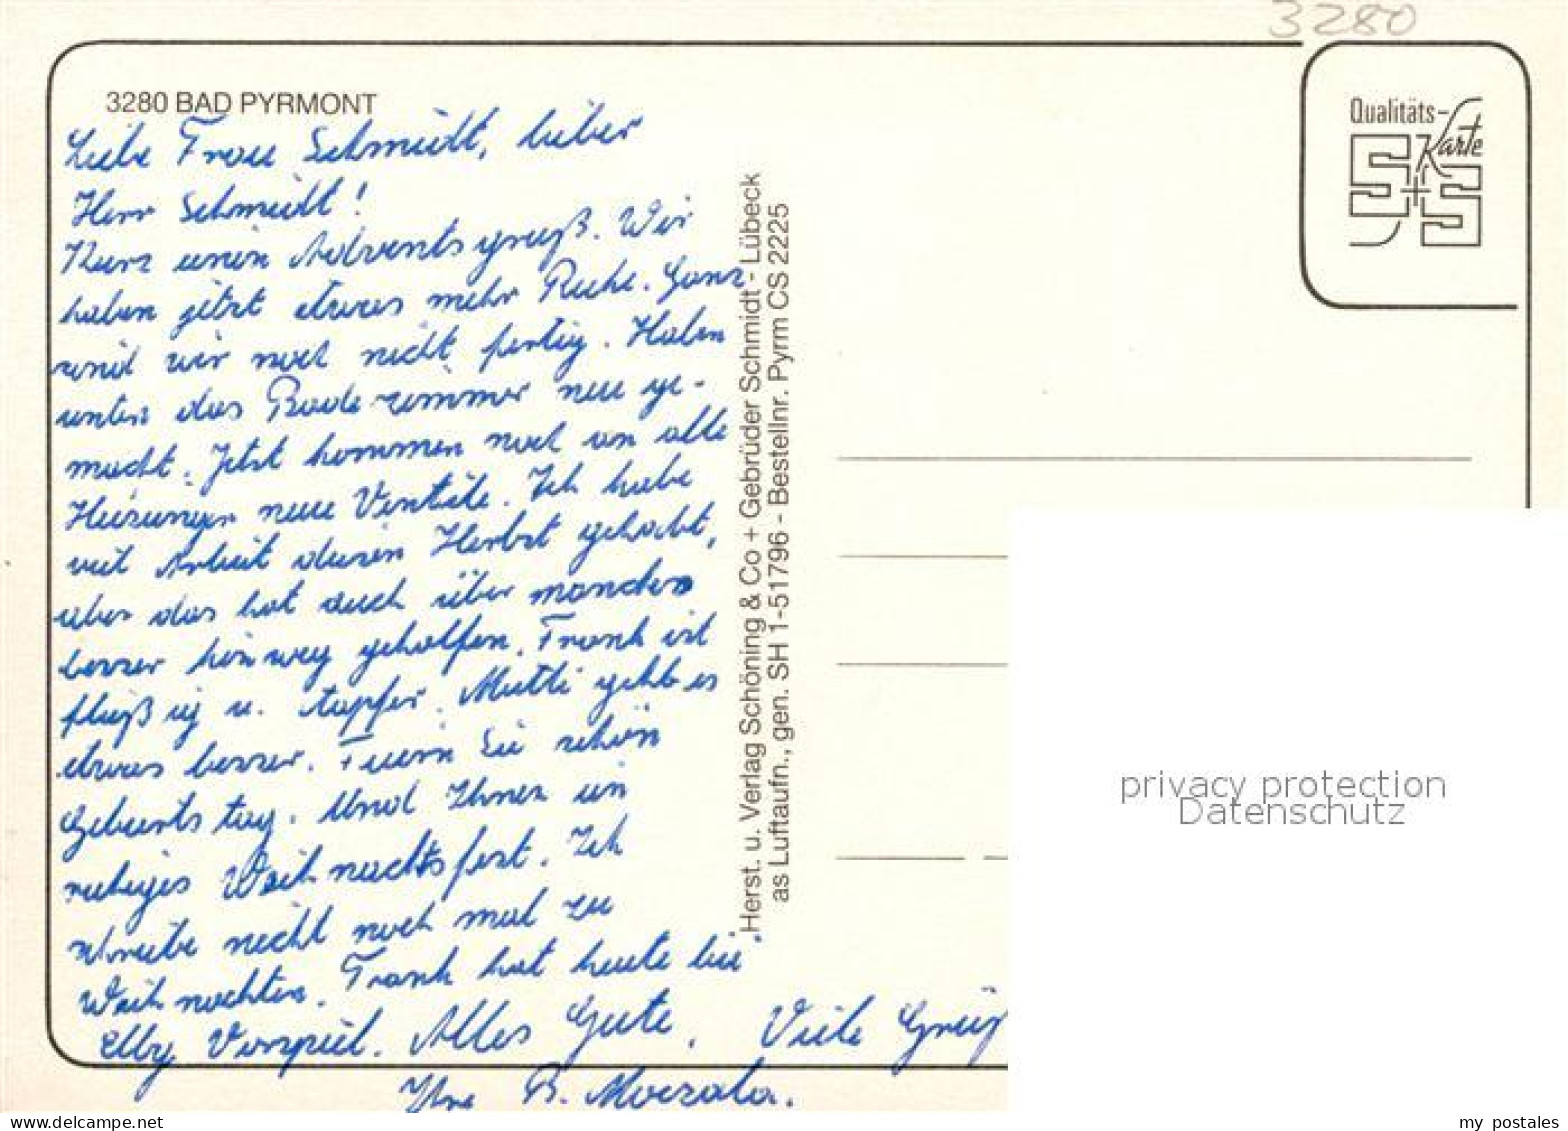 3280
3280 BAD PYRMONT
Qualitäts-
Karte
S+S
Liebe Frau Schmidt, lieber
Herr Schmidt!
Kurz einen Adventsgruß. Wir
haben jetzt etwas mehr Ruhe. Ganz
sind wir noch nicht fertig. Haben
unten das Badezimmer neu ge-
macht. Jetzt kommen noch an alle
Heizungen neue Ventile. Ich habe
viel Arbeit diesen Herbst gehabt,
aber das hat auch über manches
besser hinweg geholfen. Frank ist
fleißig u. tapfer. Mutti geht es
etwas besser. Feiern Sie schön
Geburtstag. Und Ihnen ein
ruhiges Weihnachtsfest. Ich
schreibe nicht noch mal zu
Weihnachten. Frank hat heute bei
Elly Vorspiel. Alles Gute. Viele Grüß
Ihre B.
Herst. u. Verlag Schöning & Co + Gebrüder Schmidt - Lübeck
as Luftaufn., gen. SH 1-51796 - Bestellnr. Pyrm CS 2225
privacy protection
Datenschutz
my postales